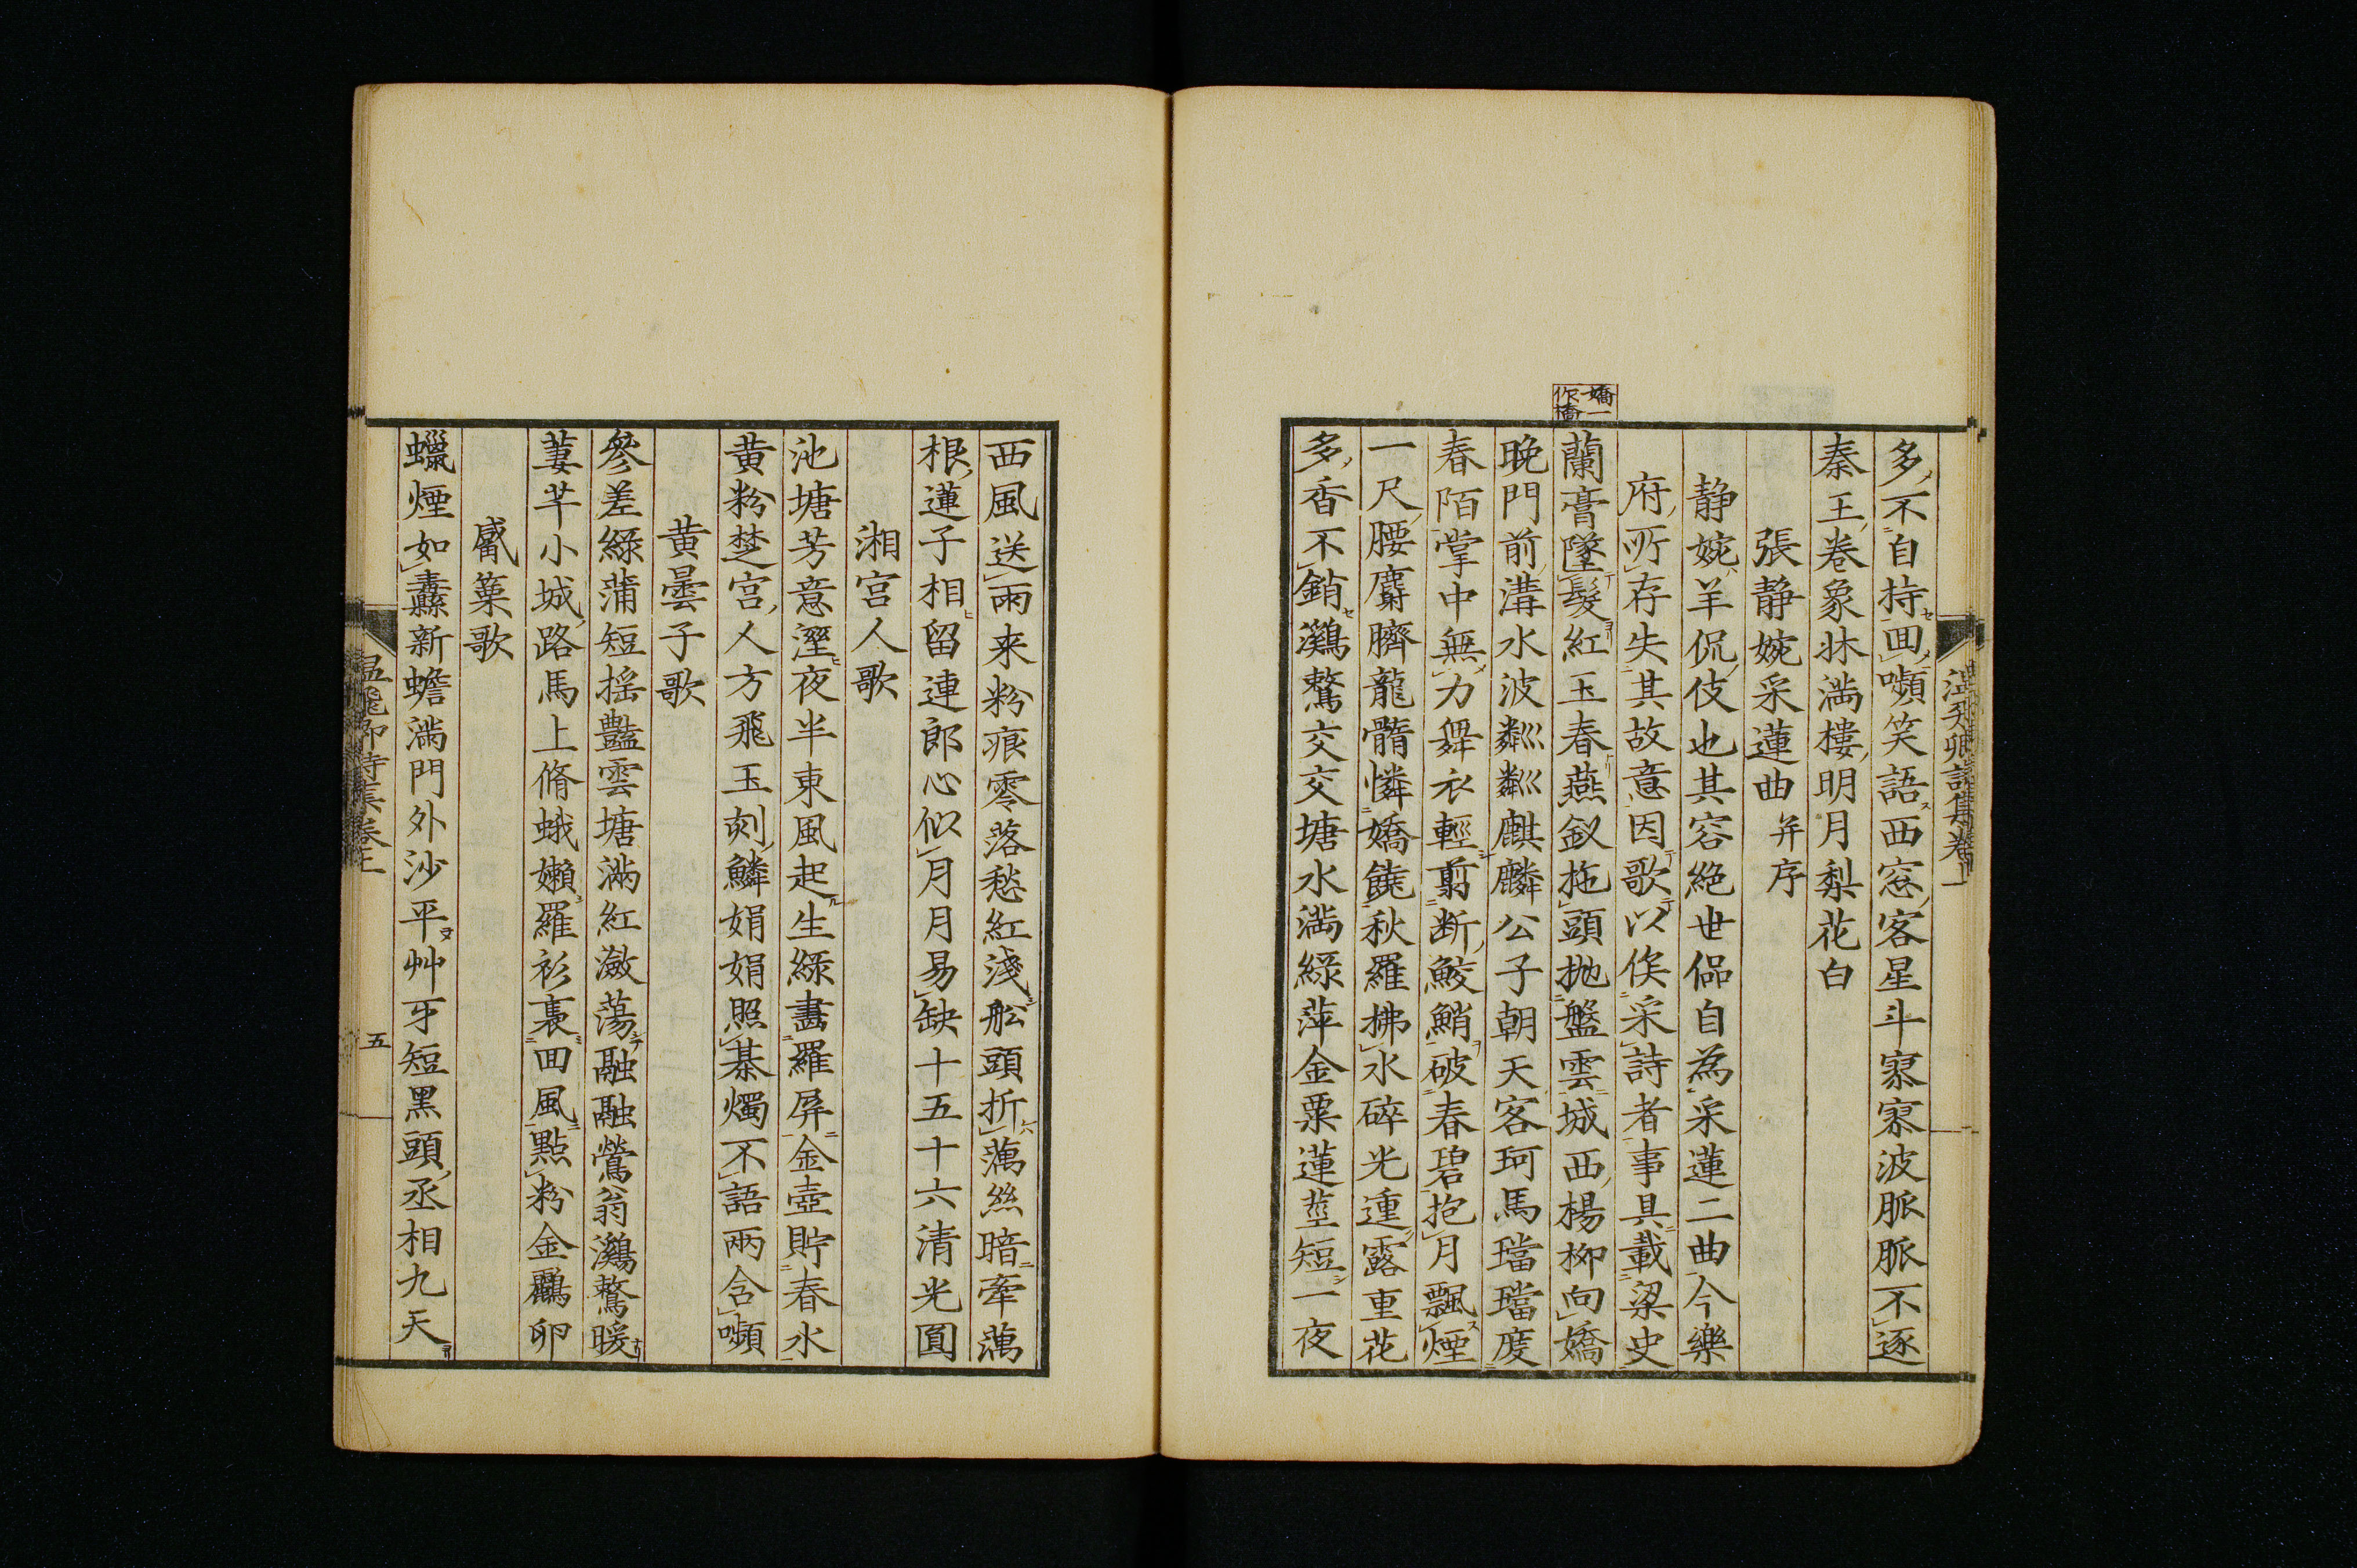 多不自持回嚬笑語西窓客星斗寥寥波脈脈不逐
秦王卷象牀滿樓明月梨花白
張静婉采蓮曲 并序
静婉羊侃伎也其容絶世侃自為采蓮二曲今樂
府所存失其故意因歌以俟采詩者事具載梁史
嬌一作橋
蘭膏墜髮紅玉春燕釵拖頭抛盤雲城西楊柳向嬌
晚門前溝水波粼粼麒麟公子朝天客珂馬璫璫度
春陌掌中無力舞衣輕剪断鮫鮹破春碧抱月飄煙
一尺腰麝臍龍髓憐嬌饒秋羅拂水碎光重露重花
多香不銷鸂鶒交交塘水滿綠萍金粟蓮莖短一夜
西風送雨来粉痕零落愁紅淺舩頭折藕絲暗牽藕
根蓮子相留連郎心似月月易缺十五十六清光圓
湘宫人歌
池塘芳意溼夜半東風起生綠畫羅屏金壺貯春水
黄粉楚宮人方飛玉刻鱗娟娟照棊燭不語兩含嚬
黄曇子歌
參差綠蒲短揺豔雲塘滿紅瀲蕩融融鶯翁鸂鶒暖
萋芊小城路馬上脩蛾嬾羅衫裊回風點粉金鸝卵
觱篥歌
蠟煙如纛新蟾滿門外沙平艸牙短黑頭丞相九天
温飛卿詩集卷一
五